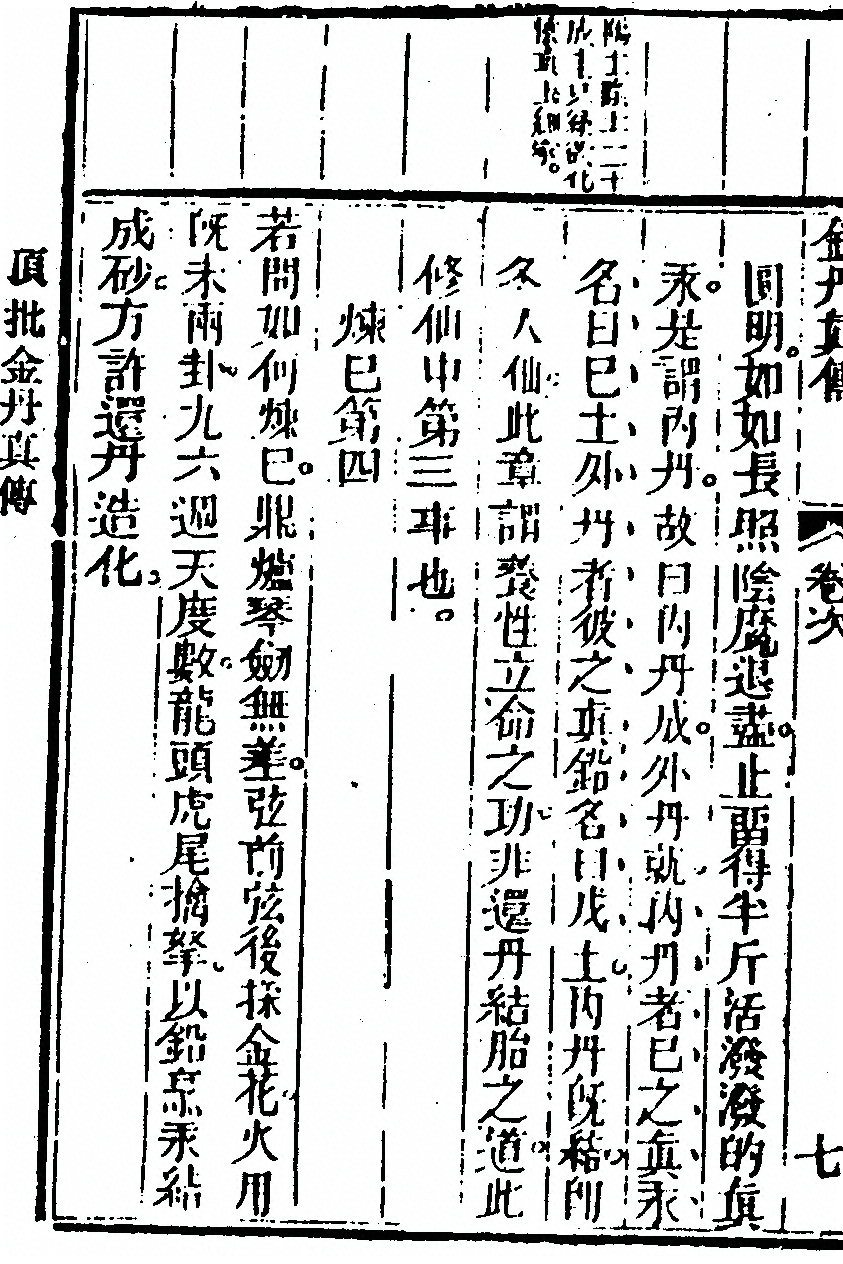 金丹真傳 卷次 七
圓明。如如長照陰魔退盡。止留得半斤活潑潑的真
汞。是謂內丹。故曰內丹成。外丹就內丹者巳之真汞
名曰巳土外丹者彼之真鉛名曰戊土內丹既結即
名人仙此章謂養性立命之功非還丹結胎之道此
修仙中第三事也。
煉巳第四
若問如何煉巳。鼎爐琴劍無差。弦前弦後採金花火用
既未兩卦九六週天度數龍頭虎尾擒拏以鉛烹汞結
成砂方許還丹造化
頂批金丹真傳